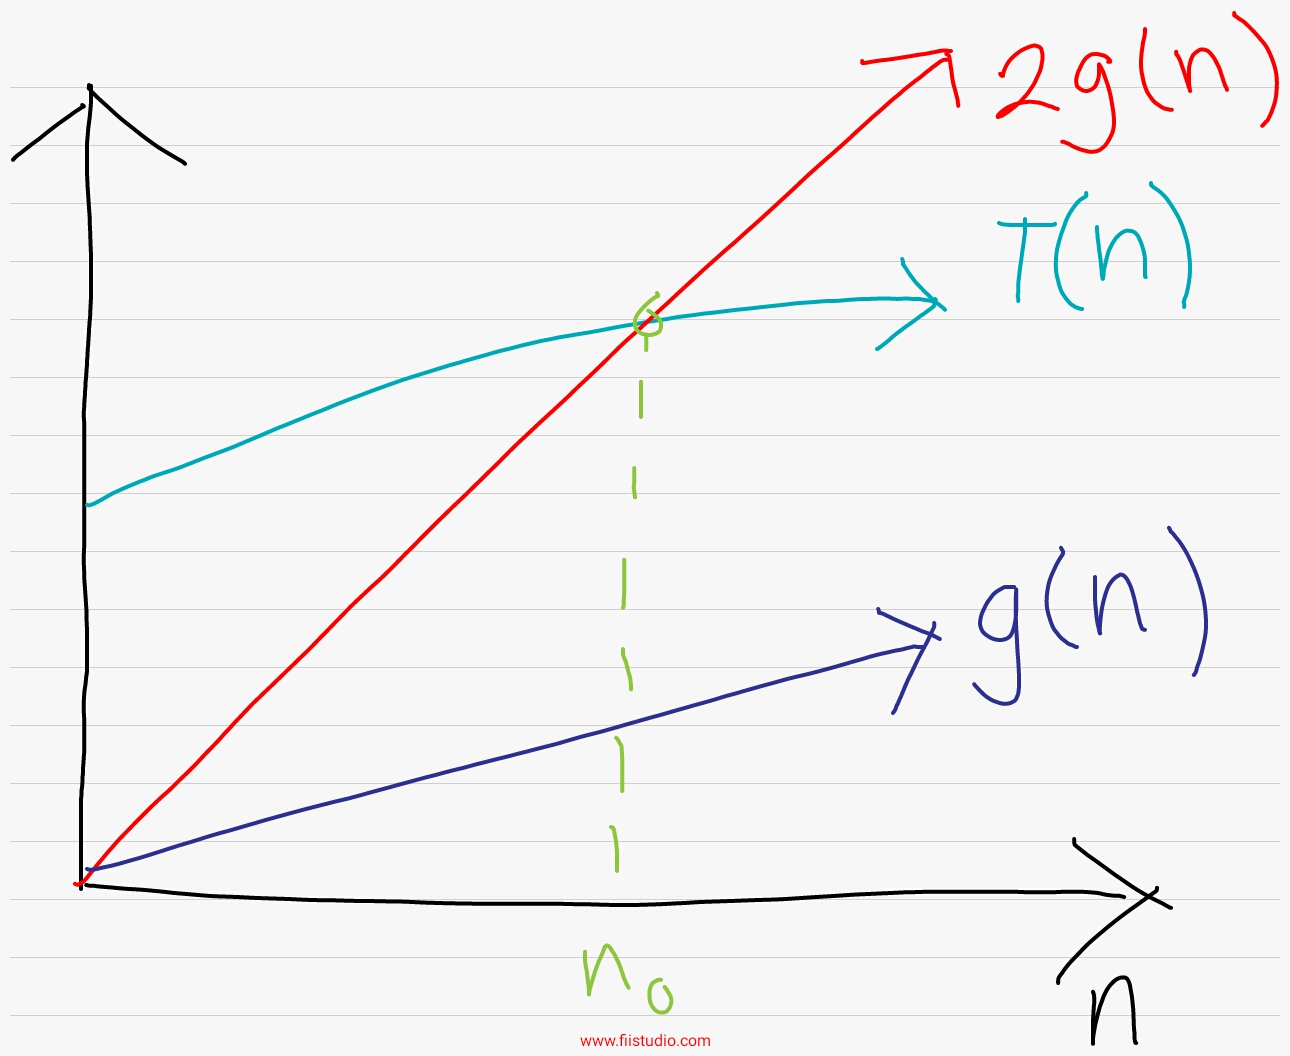 2g(n)
T(n)
g(n)
n₀
n
www.fiistudio.com